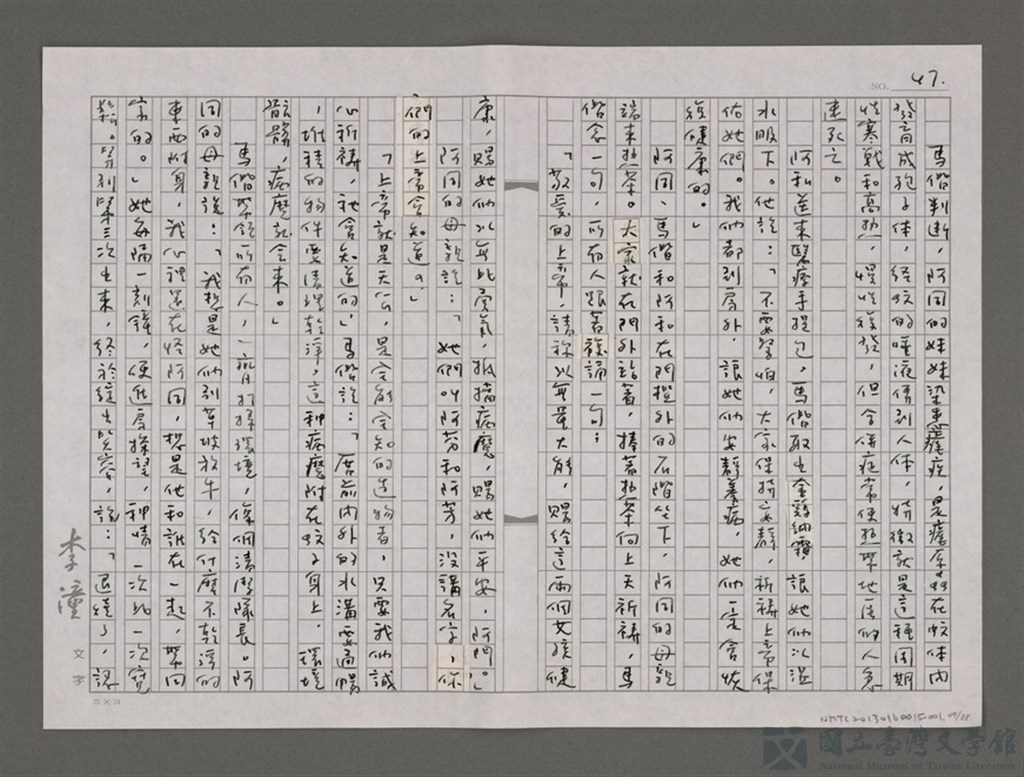 NO. 47.
馬偕判斷,阿同的妹妹染患瘧疾,是瘧原蟲在蚊体內
發育成孢子体,經蚊的唾液傳到人体,特徵就是這種週期
性寒戰和高熱,慢性復發,但合併症常使熱帶地區的人急
速死亡。
阿和送來醫療手提包,馬偕取出金雞納霜,讓她們以溫
水服下。他說:「不要害怕,大家保持安靜,祈禱上帝保
佑她們。我們都到房外,讓她們安靜養病,她們一定會恢
復健康的。」
阿同、馬偕和阿和在門檻外的石階坐下,阿同的母親
端來熱茶。大家就在門外站著,捧著熱茶向上天祈禱,馬
偕念一句,所有人跟著複誦一句:
「敬愛的上帝,請祢以無量大能,賜給這兩個女孩健
康,賜她們以無比勇氣,抵擋病魔,賜她們平安,阿門。」
阿同的母親說:「她們叫阿芬和阿芳,沒講名字,你
們的上帝會知道?」
「上帝就是天公,是全能全知的造物者,只要我們誠
心祈禱,祂會知道的,」馬偕說:「屋前內外的水溝要通暢
,堆積的物件要清理乾淨,這種病魔附在蚊子身上,環境
骯髒,病魔就會來。」
馬偕帶領所有人,一齊打掃環境,像個清潔隊長。阿
同的母親說:「我想是她們到草坡放牛,給什麼不乾淨的
東西附身,我心裡還在怪阿同,想是他和誰在一起,帶回
家的。」她每隔一刻鐘,便進房探望,神情一次比一次寬
鬆。等到第三次出來,終於綻出笑容,說:「退燒了,認
李潼
文字
25×24
NMTL20130160015F001
國立臺灣文學館
National Museum of Taiwan Literature